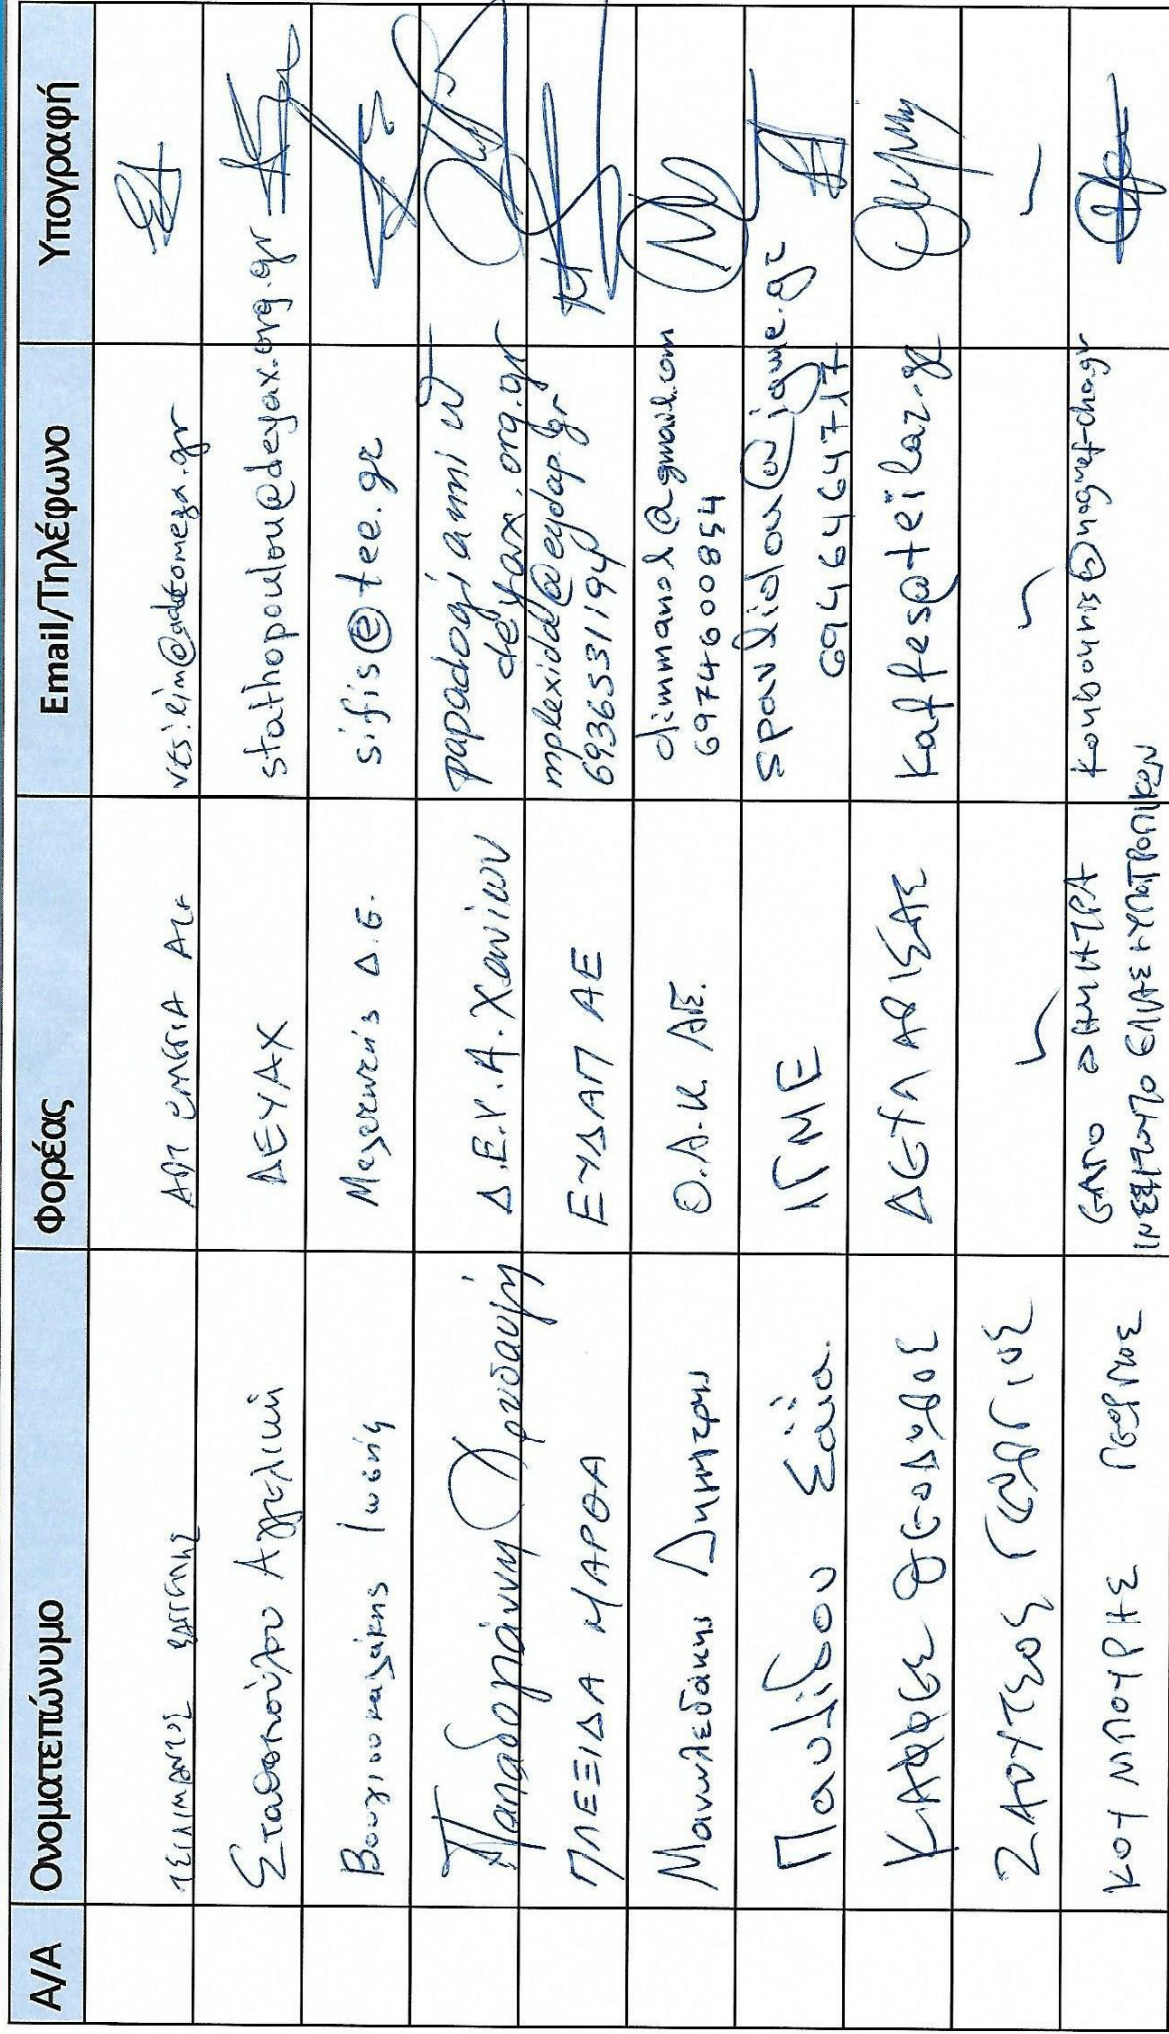 Α/Α Ονοματεπώνυμο Φορέας Email/Τηλέφωνο Υπογραφή
Σταθοπούλου Αγγελική ΔΕΥΑΧ stathopoulou@deyax.org.gr
Βουγιουκαλάκης Ιωσήφ Μελετητής Δ.Ε. sifis@tee.gr
Παπαδογιάννη Χρυσαυγή Δ.Ε.Υ.Α. Χανίων papadogianni @
deyax.org.gr
ΠΛΕΞΙΔΑ ΜΑΡΘΑ ΕΥΔΑΠ ΑΕ mplexida@eydap.gr
6936531194
Μανωλεδάκης Δημήτρης Ο.Α.Κ ΑΕ. dimmanol@gmail.com
6974600854
Παυλίδου Σοφία ΙΓΜΕ spavlidou@igme.gr
6946464717
ΚΑΦΦΕΣ ΘΕΟΔΥΛΟΣ ΔΕΥΑ ΛΑΡΙΣΑΣ kaffes@teilar.gr
ΖΑΟΥΤΣΟΣ ΓΕΩΡΓΙΟΣ
ΚΟΥΜΠΟΥΡΗΣ ΓΕΩΡΓΙΟΣ ΕΛΓΟ ΔΗΜΗΤΡΑ
ΙΝΣΤΙΤΟΥΤΟ ΕΛΙΑΣ & ΥΠΟΤΡΟΠΙΚΩΝ